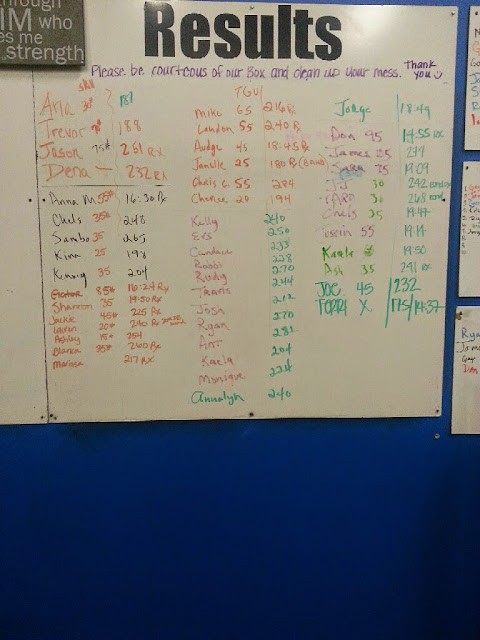 through
HIM who
es me
strength
Results
Please be courteous of our Box and clean up your mess. Thank you
Skill
Ana 35# 187
Trevor 188
Jason 75# 251 RX
Dena 232 RX
Anna M. 55# 16:30 Rx
Chels 35# 248
Sambo 35 265
Kina 25 198
Kenny 35 204
85# 16:24 Rx
Shannon 35 19:50 Rx
Jackie 45# 225 Rx
Lauren 20# 240 Rx
Ashley 15# 254
Blanca 35# 240 Rx
Marissa 217 Rx
TGU
Mike 65 216 Rx
Landon 55 240 Rx
Audge 45 18:45 Rx
Janelle 25 180 Rx (Band)
Chris G. 55 284
Chance 20 194
Kelly 240
Evs 250
Candace 233
Robbi 228
Rudy 270
Travis 244
Josh 212
Ryan 270
Ant 282
Kaela 204
Monique 224
Annalyn 240
Jorge 18:49
Don 95 19:55 RX
James 35 239
Sara 35 19:09
JJ 30 242
30 268
Chris 35 19:47
55 19:19
Kaele 19:50
Ash 35 291 RX
JOE 45 232
TERRI X 175/19:37